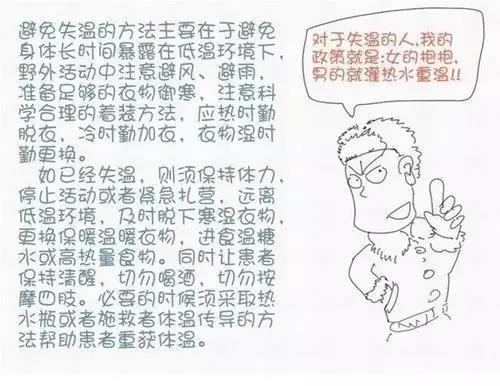 避免失温的方法主要在于避免
身体长时间暴露在低温环境下,
野外活动中注意避风、避雨,
准备足够的衣物御寒,注意科
学合理的着装方法,应热时勤
脱衣,冷时勤加衣,衣物湿时
勤更换。
如已经失温,则须保持体力,
停止活动或者紧急扎营,远离
低温环境,及时脱下寒湿衣物,
更换保暖温暖衣物,进食温糖
水或高热量食物。同时让患者
保持清醒,切勿喝酒,切勿按
摩四肢。必要的时候须采取热
水瓶或者施救者体温传导的方
法帮助患者重获体温。
对于失温的人,我的
政策就是:女的抱抱,
男的就灌热水重温!!